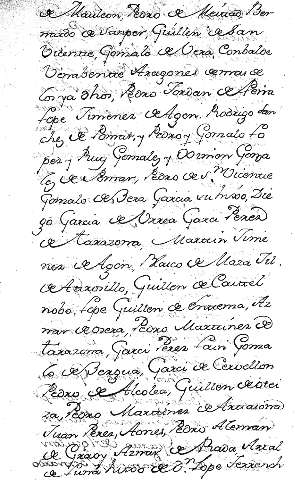 de Mauleon, Pedro de Meitad Ber
nardo de Sanper, Guillen de San
Vicente, Gomalo de Vera
Aragones demas de
los ya dhos, Pedro Jordan de Peña
Lope Timenez de Agon, Rodrigo San
chez de Pomar, y Pedro y Gomalo Lo
pez y Ruy Gomalez y Gonza
lez de Pomar, Pedro de S.n Vicente
Gomalo de Vera Garcia su hixo, Die
go Garcia de Urrea Garci Perez
de Tarazona, Martin Time
nez de Agon, Blasco de Maza Fel.
de Atrosillo, Guillen de Castel
nobo, Lope Guillen de Entrema, Az
nar de Osera, Pedro Martinez de
Tarazona, Garci Perez Goma
lo de Bergua, Garci de Cervellon
Pedro de Alcolea, Guillen de Otei
za, Pedro Martinez de
Juan Perez, Pedro Aleman
de Grao y Aznar de Rada Artal
de Luna hixos de D.n Lope Ferrench